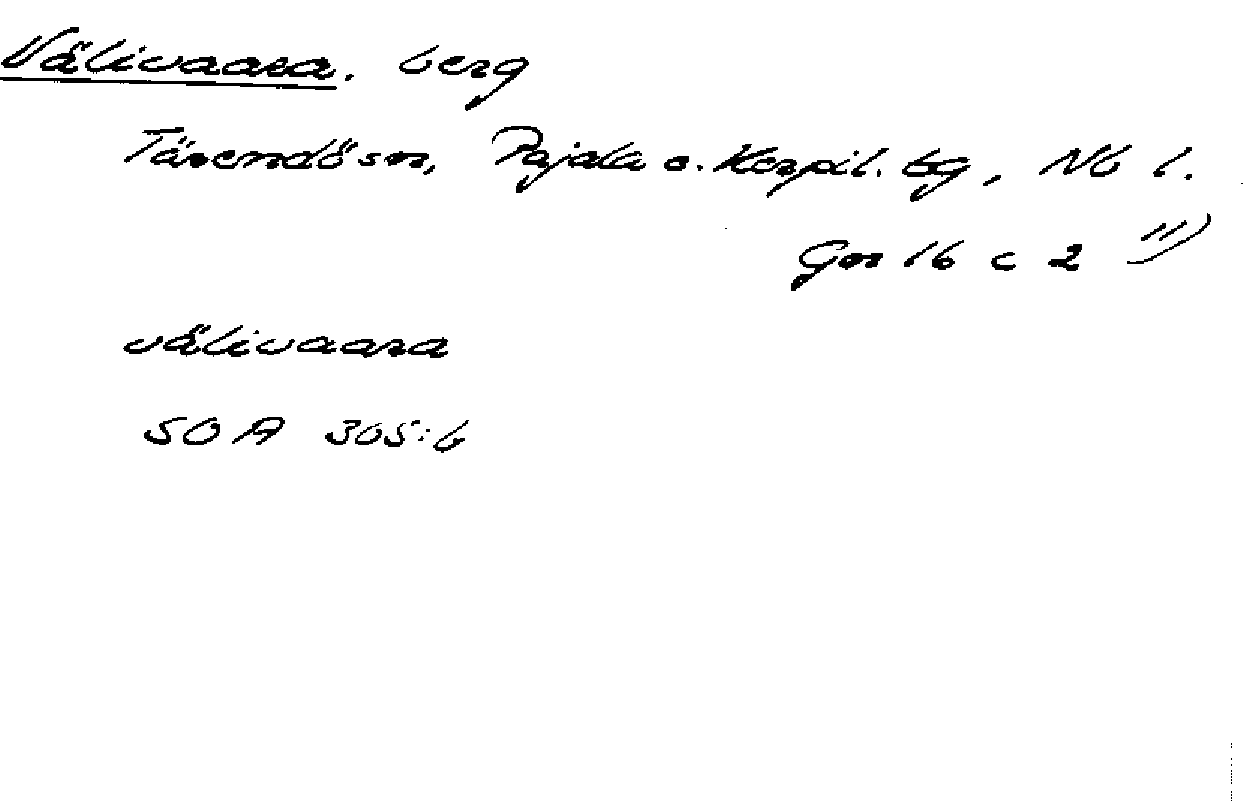 Välivaara. berg
Tärendö sn, Pajala o. Korpil. tg, Nb l.
Gnr 16 c 2 11)
välivaara
SOA 305:6